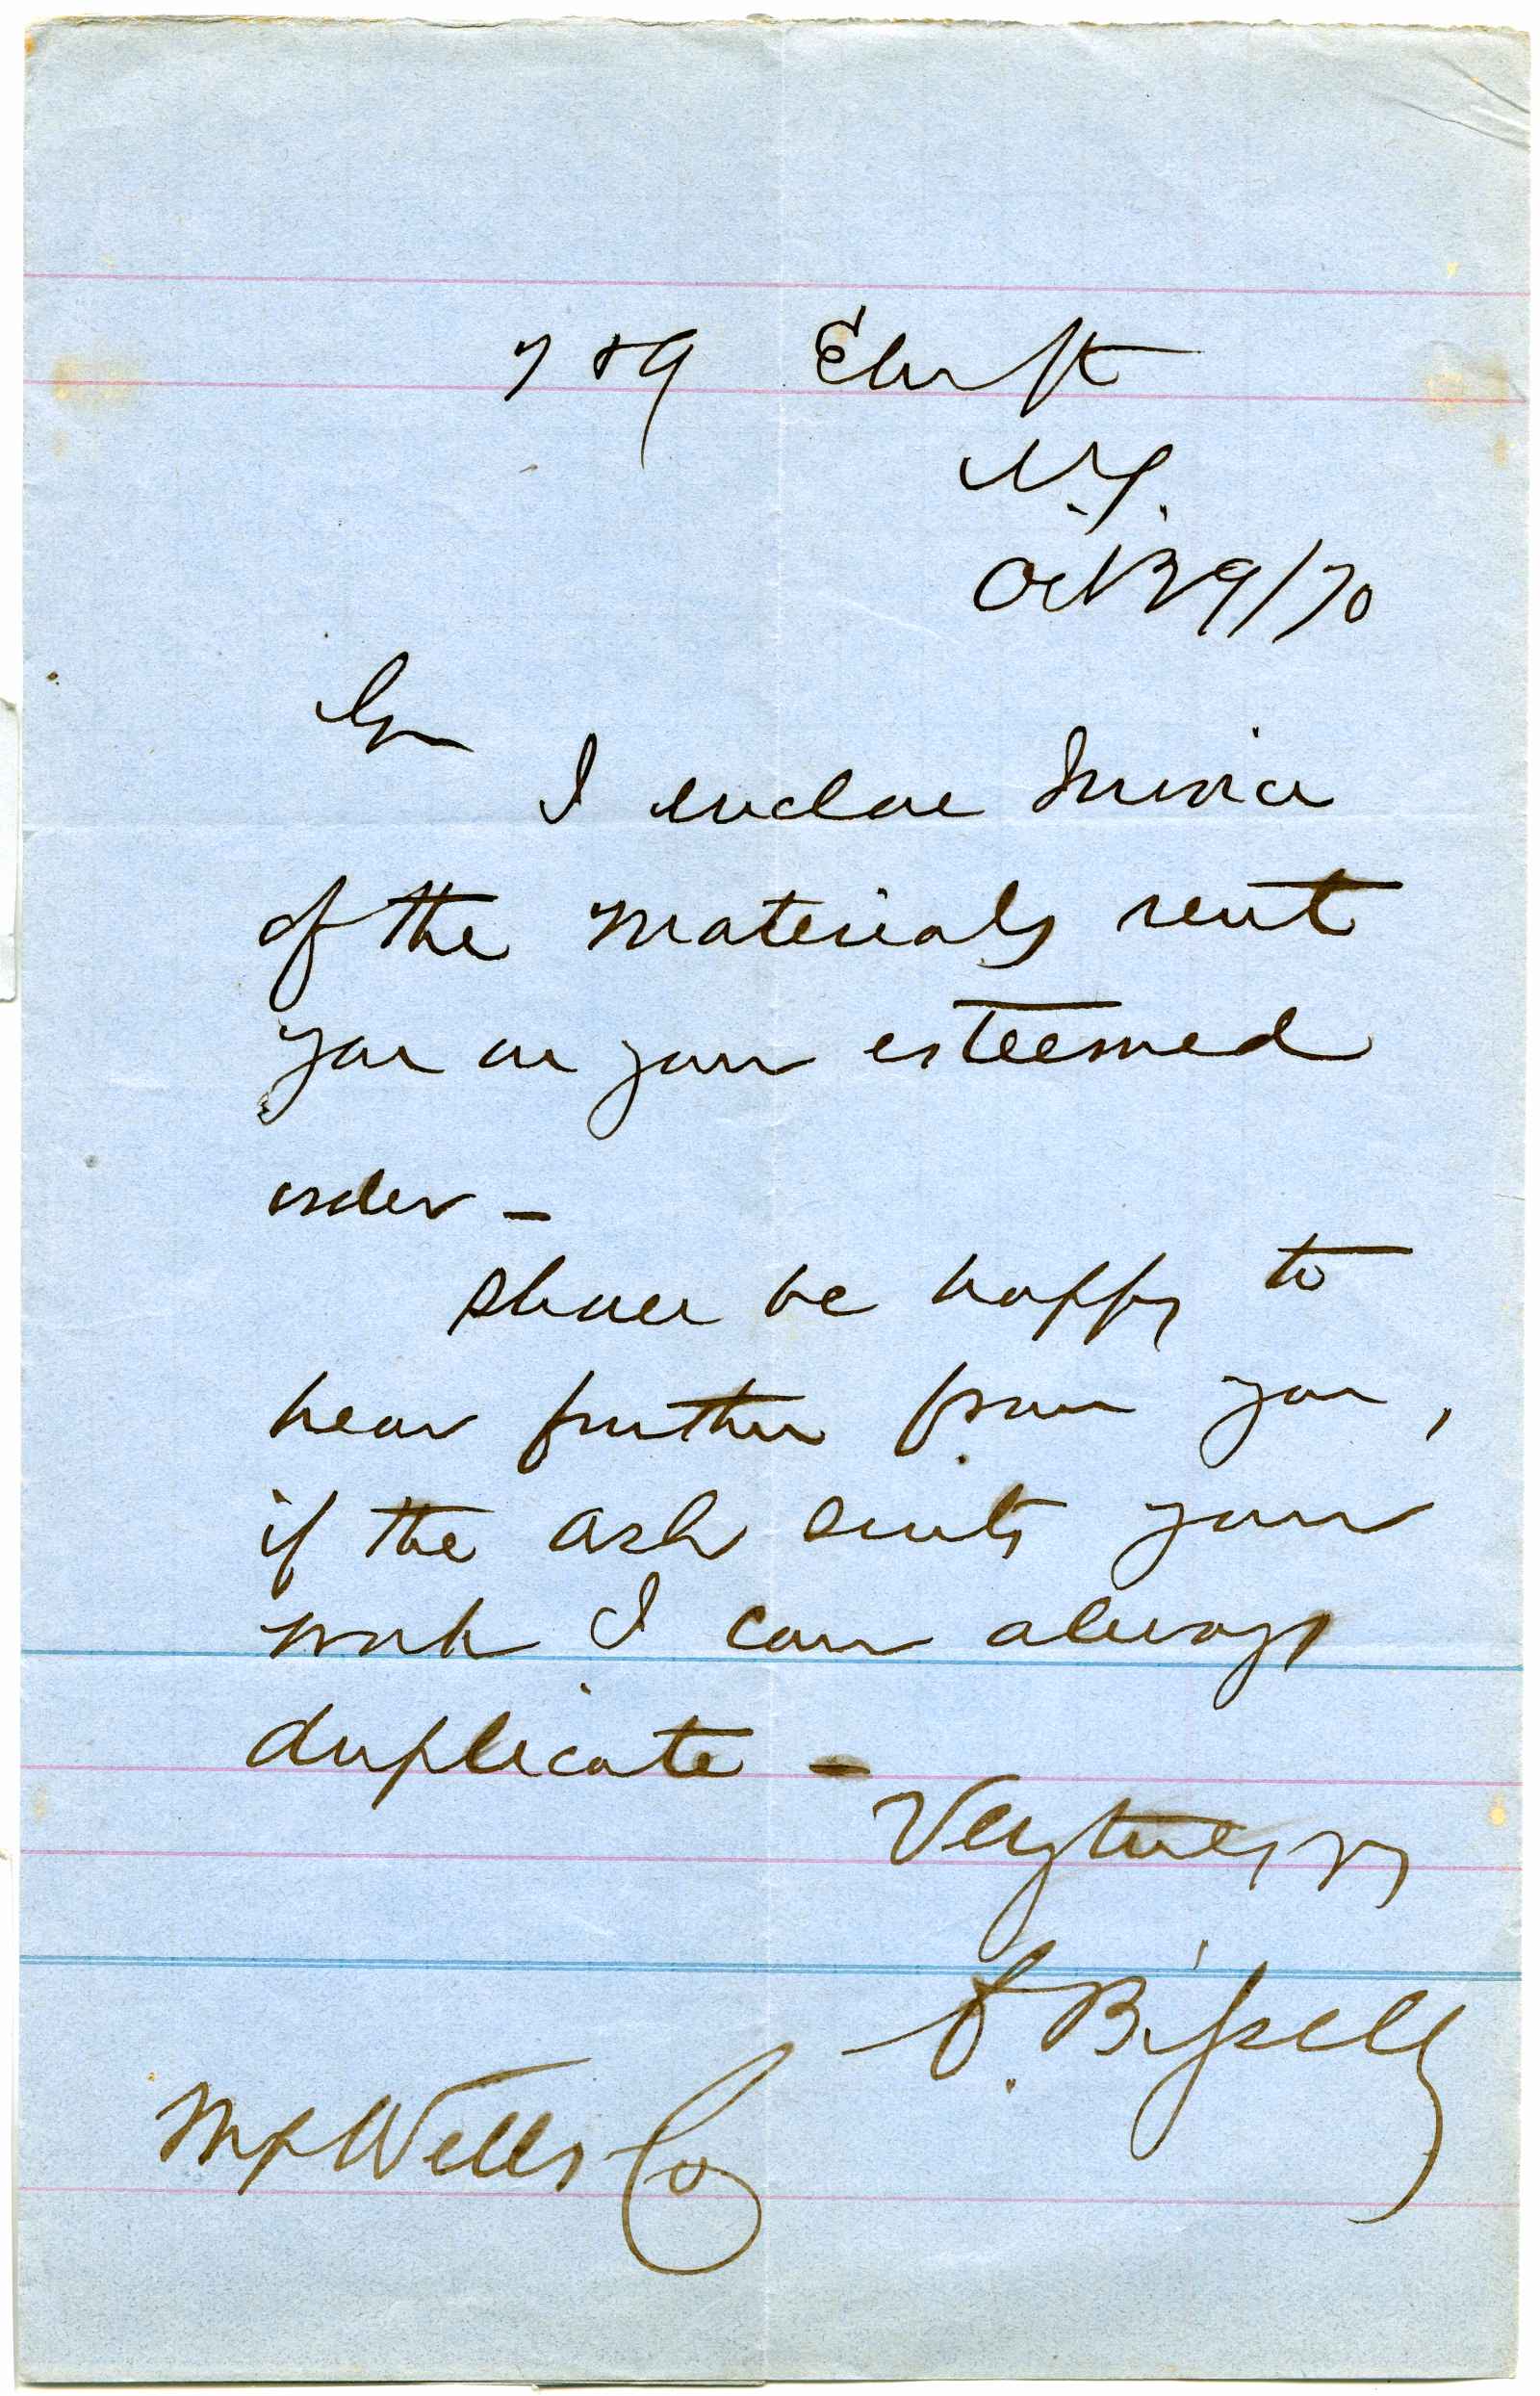 7 & 9 Elm St
N.Y.
Oct 29/70
I enclose Invoice
of the materials sent
you on your esteemed
order –
Shall be happy to
hear further from you,
if the ash suits your
work I can always
duplicate –
Very truly yrs
Bissell
Wells Co